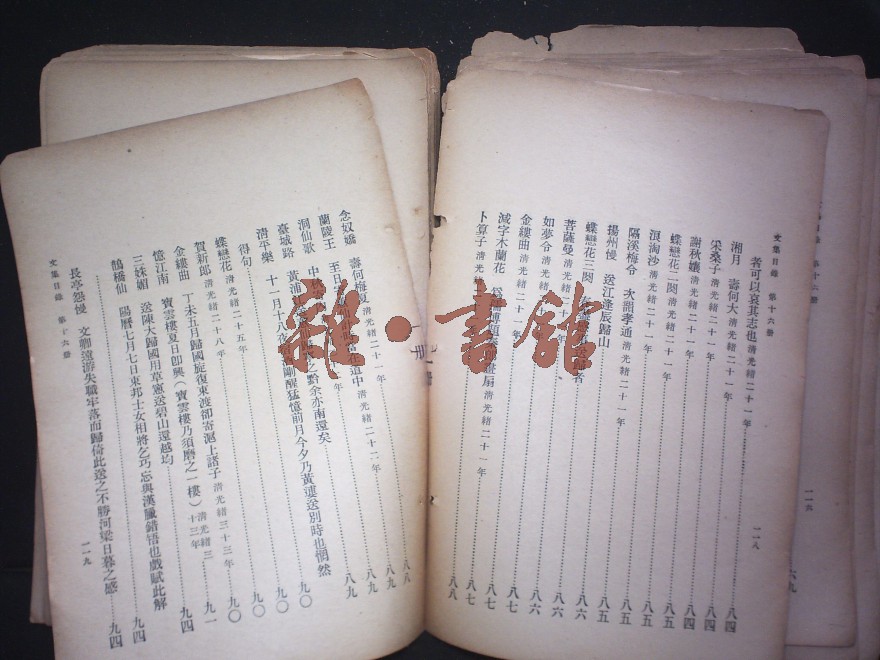 文集目錄　第十六册　一一八
者可以哀其志也 清光緒二十一年 八四
湘月　壽何大 清光緒二十一年 八四
采桑子 清光緒二十一年 八四
謝秋孃 清光緒二十一年 八四
蝶戀花二闋 清光緒二十一年 八五
浪淘沙 清光緒二十一年 八五
隔溪梅令　次韻孝通 清光緒二十一年 八五
揚州慢　送江逢辰歸山 八五
蝶戀花三闋 者 八六
菩薩曼 清光緒二十一年 八六
如夢令 清光緒二十一年 八六
金縷曲 清光緒二十一年 八七
減字木蘭花 畫扇 清光緒二十一年 八七
卜算子 清光緒 年 八八
念奴嬌　壽何梅夏 清光緒二十一年 八八
蘭陵王　至日 道中 清光緒二十二年 八九
洞仙歌　中秋 之黔余亦南還矣 年 八九
臺城路　黃浦 八九
清平樂　十一月十八夜 酒醒猛憶前月今夕乃黃浦送別時也惘然
得句 九〇
蝶戀花 清光緒二十五年 九〇
賀新郎 清光緒二十八年 九〇
金縷曲　丁未五月歸國旋復東渡卻寄滬上諸子 清光緒三十三年 九〇
憶江南　寶雲樓夏日卽興（寶雲樓乃須磨之一樓） 清光緒三十三年 九一
三姝媚　送陳大歸國用草窻送碧山還越均 九四
鵲橋仙　陽曆七月七日東邦士女相將乞巧忘與漢臘錯啎也戲賦此解 九四
長亭怨慢　文卿遠游失職牢落而歸倚此送之不勝河梁日暮之感 九四
文集目錄　第十六册　一一九
雜・書館